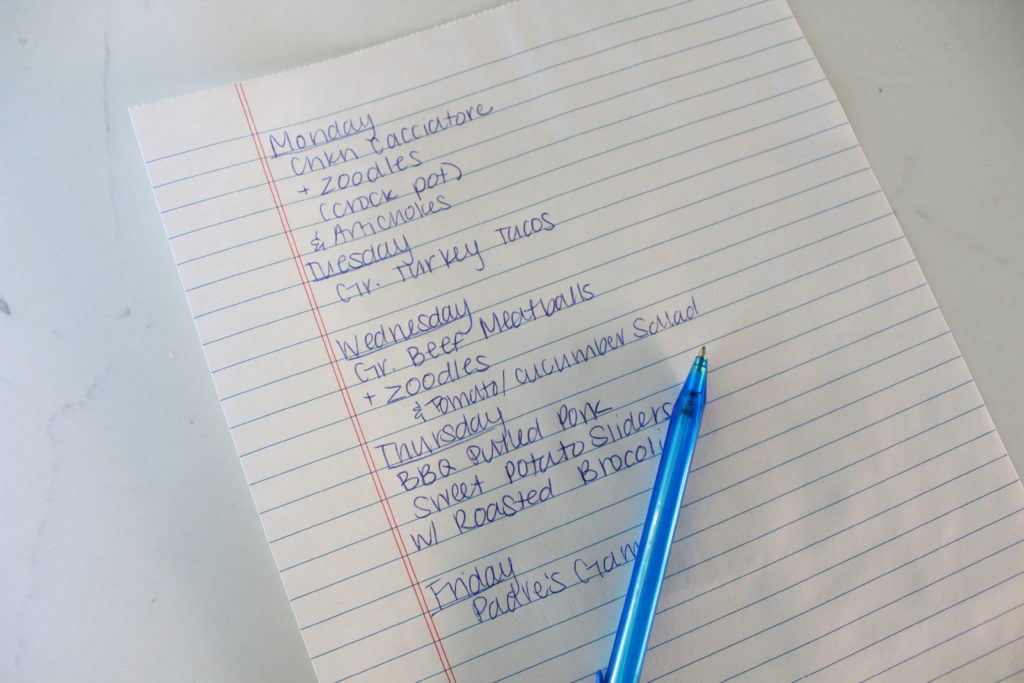 Monday
Chkn Cacciatore
+ Zoodles
(crock pot)
& Artichokes
Tuesday
Gr. Turkey Tacos
Wednesday
Gr. Beef Meatballs
+ Zoodles
& Tomato/cucumber Salad
Thursday
BBQ Pulled Pork
Sweet Potato Sliders
w/ Roasted Brocoli
Friday
Padre's Gam